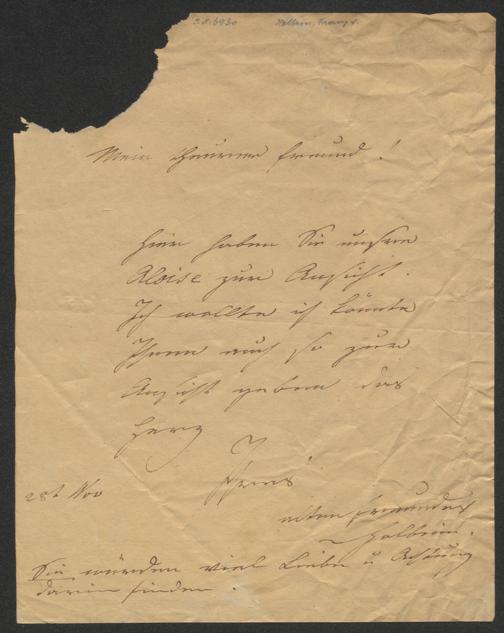 Holbein, Franz v.
Mein theurer Freund!
Hier haben Sie unsre
Aloise zur Ansicht.
Ich wollte ich könnte
Ihnen auch so zur
Ansicht geben das
Herz
Ihres
28t Nov
alten Freundes
Holbein.
Sie würden viel Liebe u Achtung
darin finden.